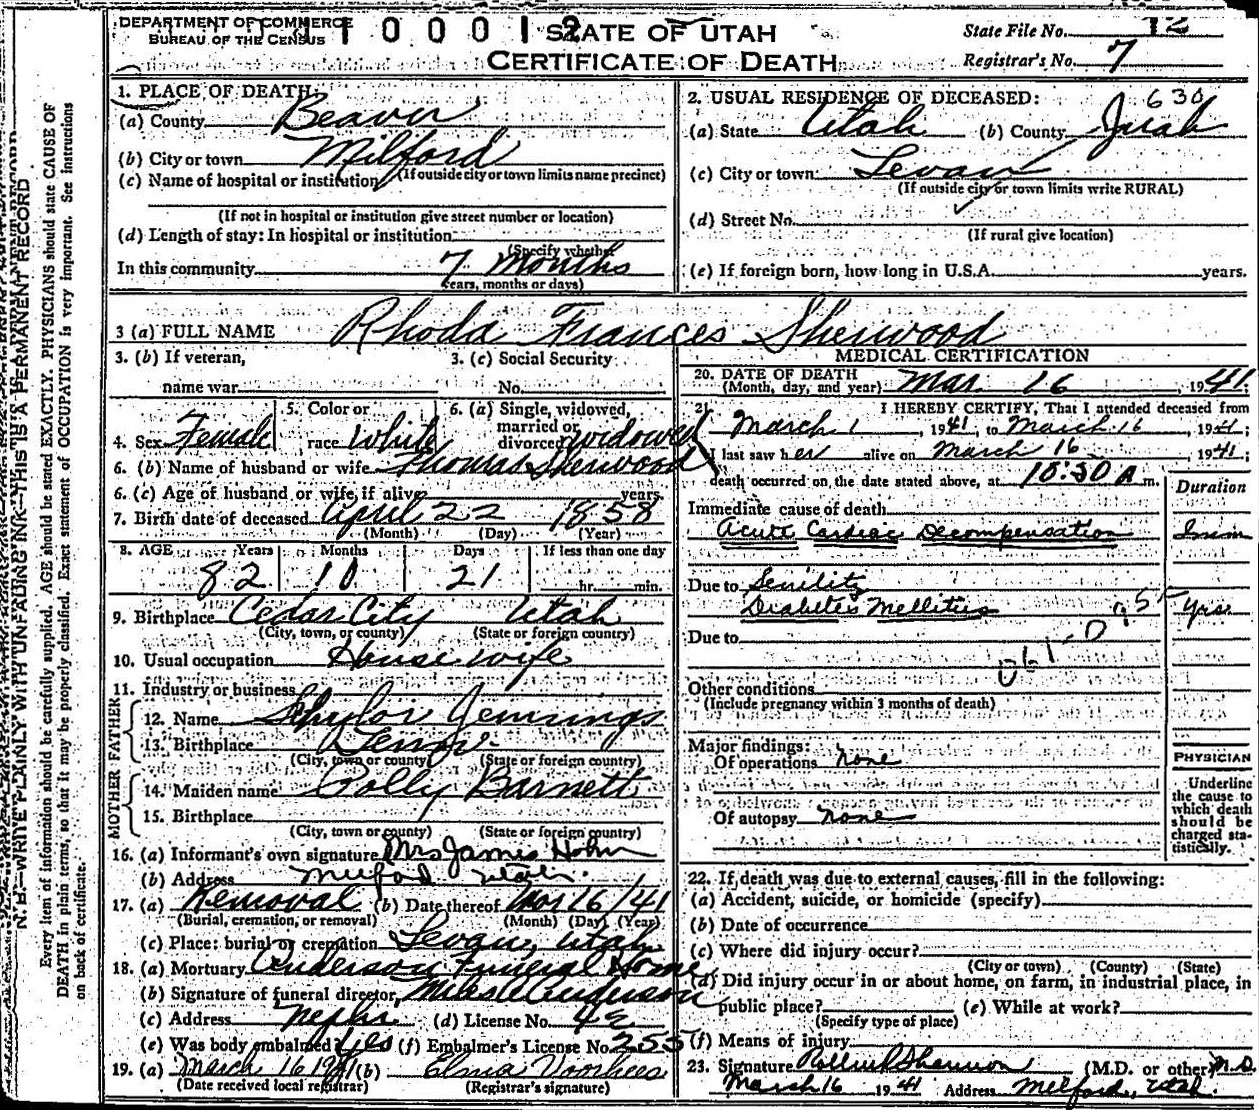 DEPARTMENT OF COMMERCE
BUREAU OF THE CENSUS
1 0 0 0 1 2
STATE OF UTAH
CERTIFICATE OF DEATH
State File No. 12
Registrar's No. 7
1. PLACE OF DEATH:
(a) County Beaver
(b) City or town Milford
(If outside city or town limits name precinct)
(c) Name of hospital or institution
(If not in hospital or institution give street number or location)
(d) Length of stay: In hospital or institution
(Specify whether
In this community 7 Months
years, months or days)
2. USUAL RESIDENCE OF DECEASED: 630
(a) State Utah (b) County Juab
(c) City or town: Levan
(If outside city or town limits write RURAL)
(d) Street No.
(If rural give location)
(e) If foreign born, how long in U.S.A. years.
3 (a) FULL NAME Rhoda Frances Sherwood
3. (b) If veteran,
name war
3. (c) Social Security
No.
4. Sex Female
5. Color or
race White
6. (a) Single, widowed,
married or
divorced widowed
6. (b) Name of husband or wife Thomas Sherwood
6. (c) Age of husband or wife, if alive years.
7. Birth date of deceased April 22 1858
(Month) (Day) (Year)
8. AGE Years Months Days If less than one day
82 10 21 hr. min.
9. Birthplace Cedar City Utah
(City, town, or county) (State or foreign country)
10. Usual occupation House wife
11. Industry or business
FATHER
12. Name Schylor Jennings
13. Birthplace
(City, town or county) (State or foreign country)
MOTHER
14. Maiden name Polly Barnett
15. Birthplace
(City, town or county) (State or foreign country)
16. (a) Informant's own signature Mrs James Hohn
(b) Address Milford Utah.
17. (a) Removal (b) Date thereof Mar 16/41
(Burial, cremation, or removal) (Month) (Day) (Year)
(c) Place: burial or cremation Levan, Utah
18. (a) Mortuary Anderson Funeral Home
(b) Signature of funeral director, Anderson
(c) Address Nephi (d) License No. 42
(e) Was body embalmed? Yes (f) Embalmer's License No. 255
19. (a) March 16 1941 (b) Elona Voorhees
(Date received local registrar) (Registrar's signature)
MEDICAL CERTIFICATION
20. DATE OF DEATH
(Month, day, and year) Mar. 16, 1941.
21. I HEREBY CERTIFY, That I attended deceased from
March 1, 1941, to March 16, 1941;
I last saw her alive on March 16, 1941;
death occurred on the date stated above, at 10:30 A m.
Duration
Immediate cause of death
Acute Cardiac Decompensation
Due to Senility
Diabetes Mellitus yrs.
Due to
061-0
Other conditions
(Include pregnancy within 3 months of death)
Major findings:
Of operations none
Of autopsy none
PHYSICIAN
Underline
the cause to
which death
should be
charged sta-
tistically.
22. If death was due to external causes, fill in the following:
(a) Accident, suicide, or homicide (specify)
(b) Date of occurrence
(c) Where did injury occur?
(City or town) (County) (State)
(d) Did injury occur in or about home, on farm, in industrial place, in
public place? (e) While at work?
(Specify type of place)
(f) Means of injury
23. Signature Shannon (M.D. or other) M.D.
March 16 1941 Address Milford, Utah.
N.B.—WRITE PLAINLY WITH UNFADING INK—THIS IS A PERMANENT RECORD
Every item of information should be carefully supplied. AGE should be stated EXACTLY. PHYSICIANS should state CAUSE OF
DEATH in plain terms, so that it may be properly classified. Exact statement of OCCUPATION is very important. See instructions
on back of certificate.